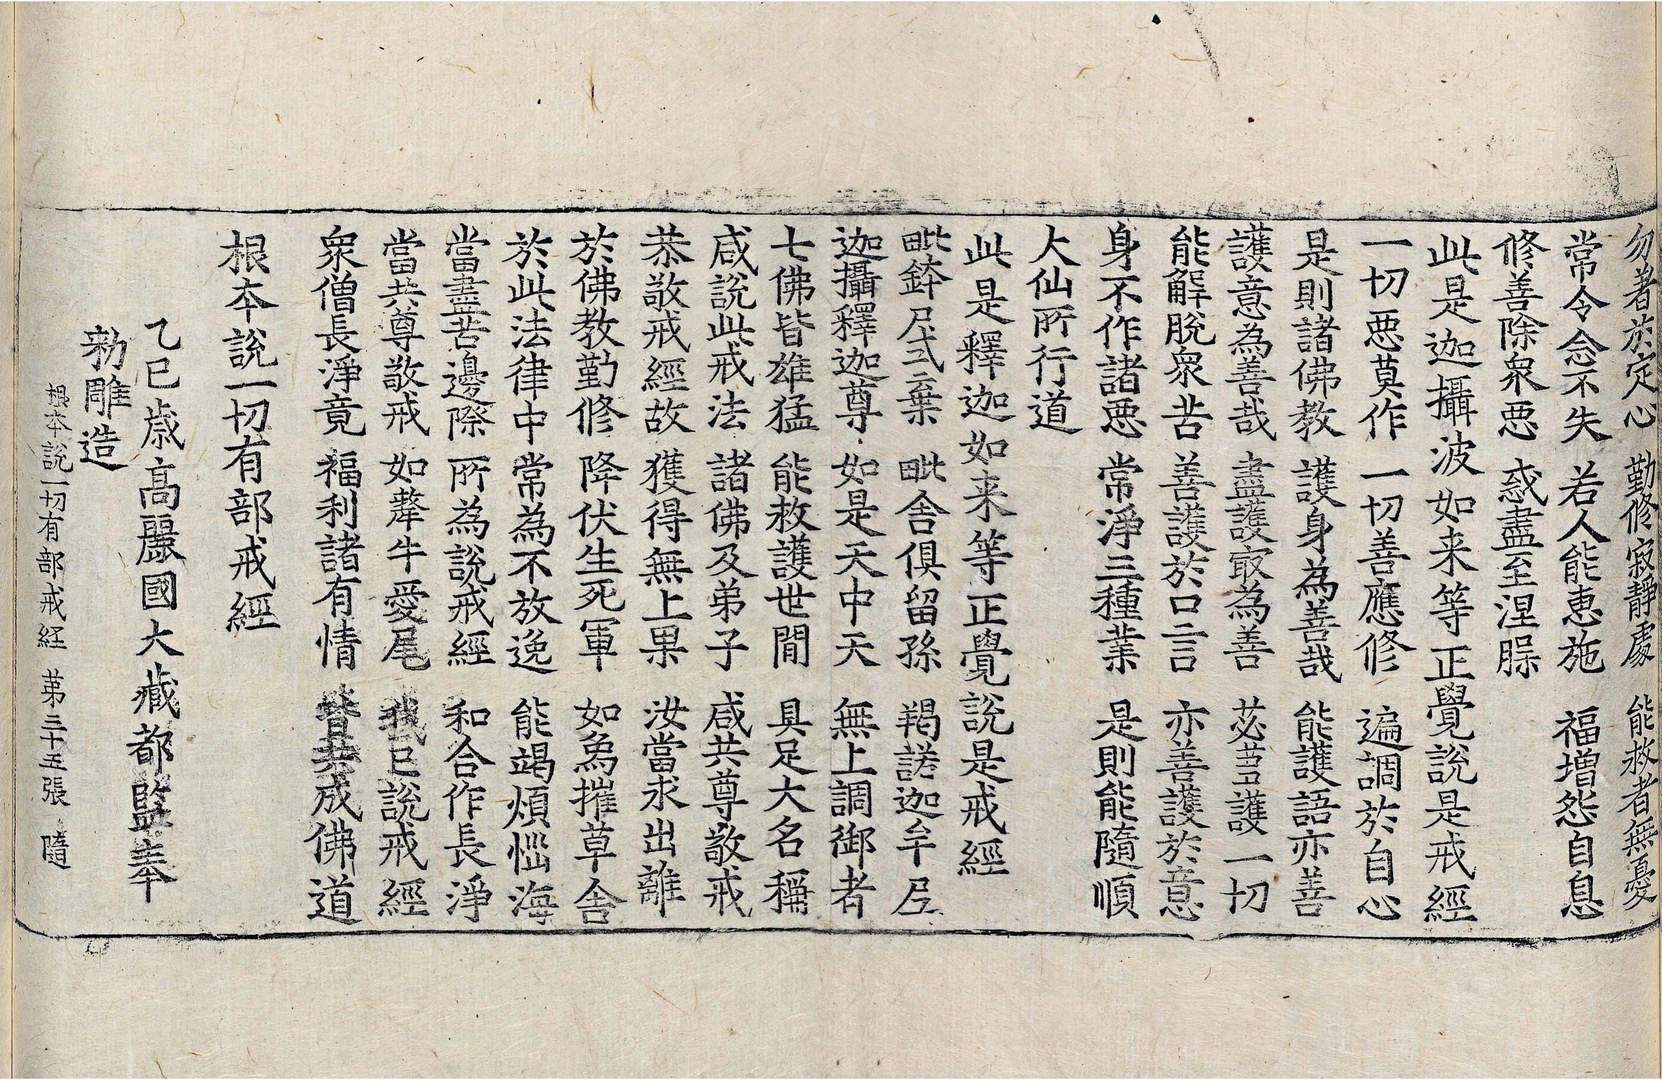 勿著於定心　勤修寂靜處　能救者無憂
常令念不失　若人能惠施　福增怨自息
修善除衆惡　惑盡至涅槃
此是迦攝波如来等正覺說是戒經
一切惡莫作　一切善應修　遍調於自心
是則諸佛教　護身為善哉　能護語亦善
護意為善哉　盡護㝡為善　苾芻護一切
能解脫衆苦　善護於口言　亦善護於意
身不作諸惡　常淨三種業　是則能隨順
大仙所行道
此是釋迦如来等正覺說是戒經
毗鉢尸式棄　毗舍俱留孫　羯諾迦牟尼
迦攝釋迦尊　如是天中天　無上調御者
七佛皆雄猛　能救護世間　具足大名稱
咸說此戒法　諸佛及弟子　咸共尊敬戒
恭敬戒經故　獲得無上果　汝當求出離
於佛教勤修　降伏生死軍　如象摧草舍
於此法律中　常為不放逸　能竭煩惱海
當盡苦邊際　所為說戒經　和合作長淨
當共尊敬戒　如犛牛愛尾　我已說戒經
衆僧長淨竟　福利諸有情　皆共成佛道
根本說一切有部戒經
乙巳歳高麗國大藏都監奉
勑雕造
根本說一切有部戒経　第三十五張　隨